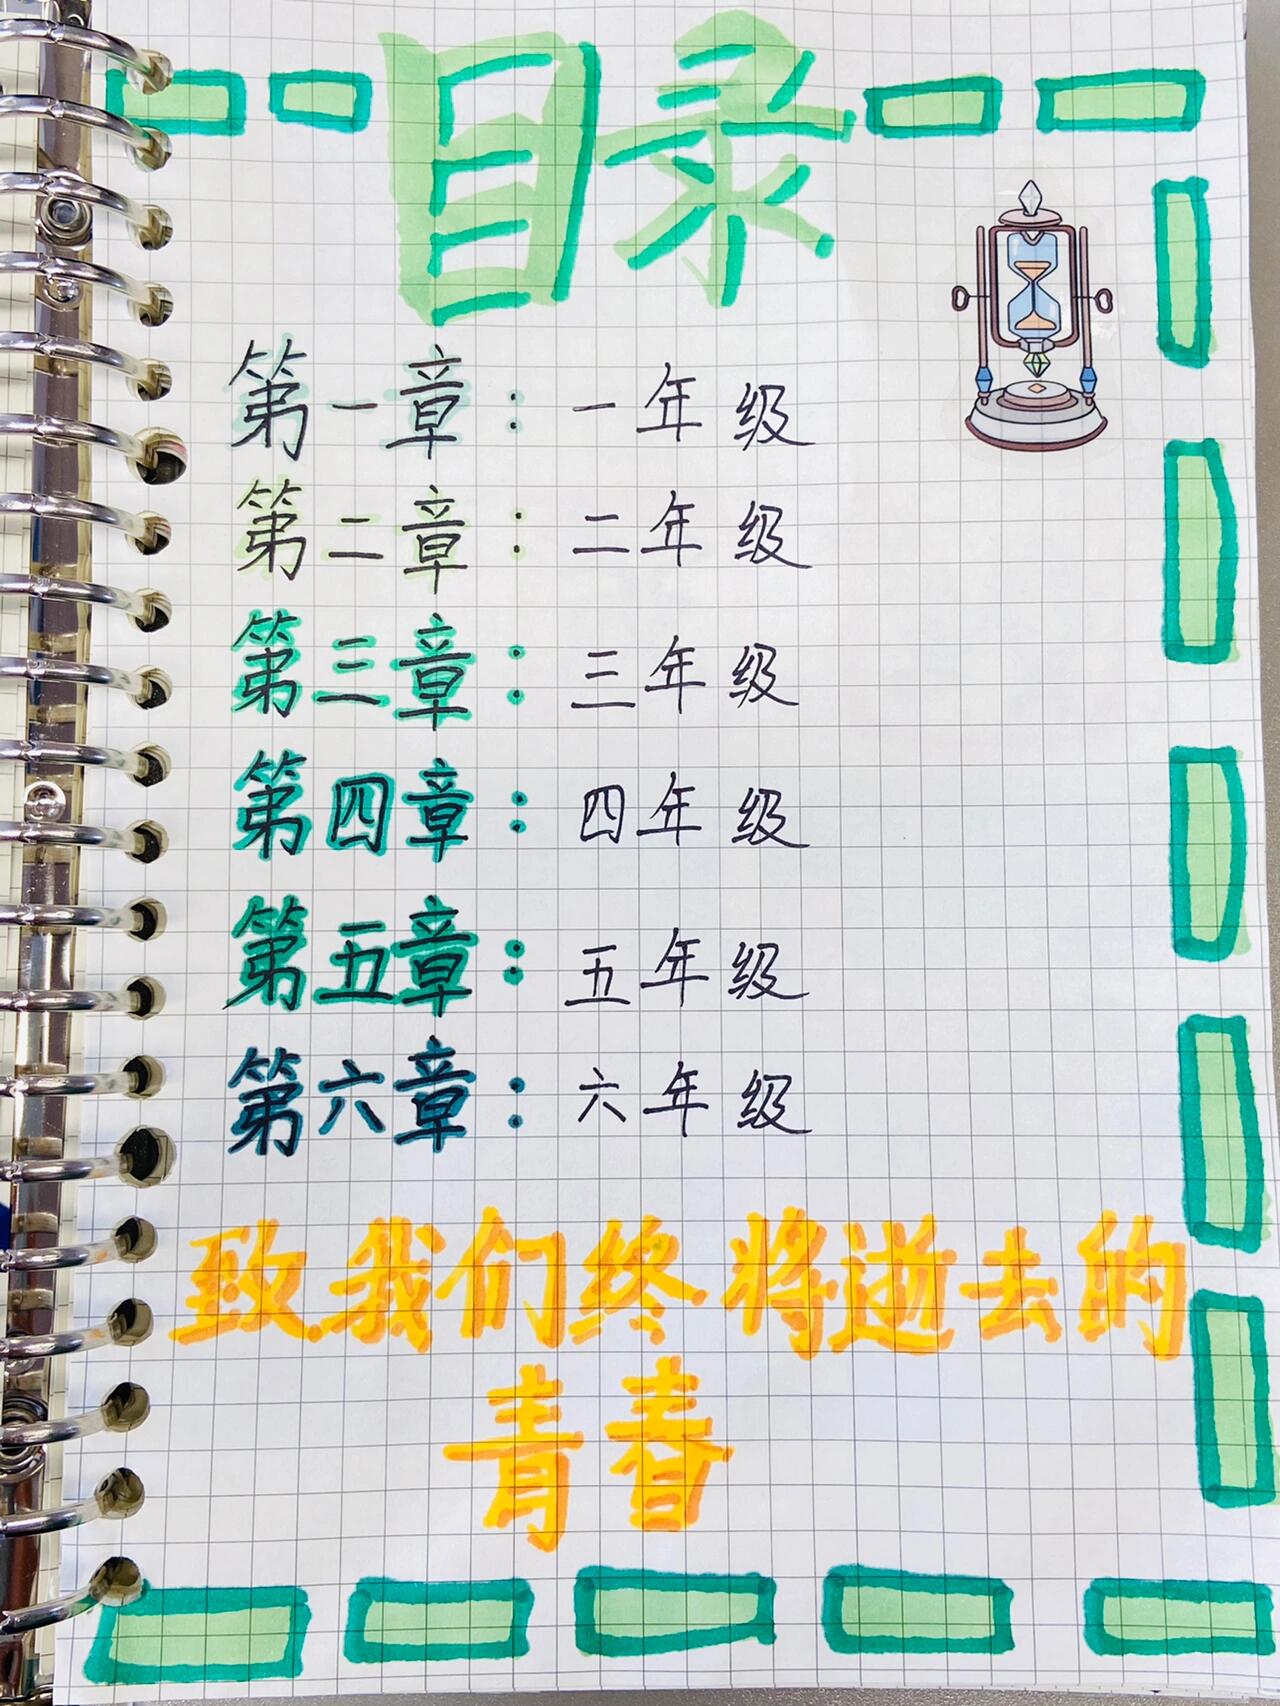 目录
第一章：一年级
第二章：二年级
第三章：三年级
第四章：四年级
第五章：五年级
第六章：六年级
致我们终将逝去的
青春